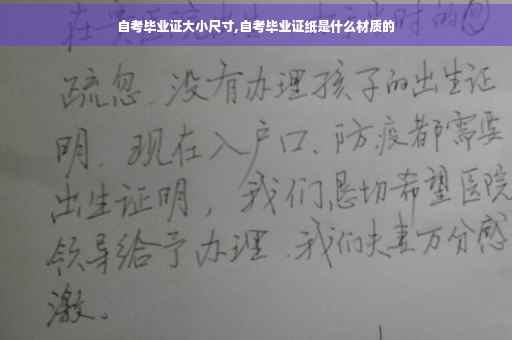 自考毕业证大小尺寸,自考毕业证纸是什么材质的
疏忽、没有办理孩子的出生证
明、现在入户口、防疫都需要
出生证明，我们恳切希望医院
领导给予办理、我们夫妻万分感
激。